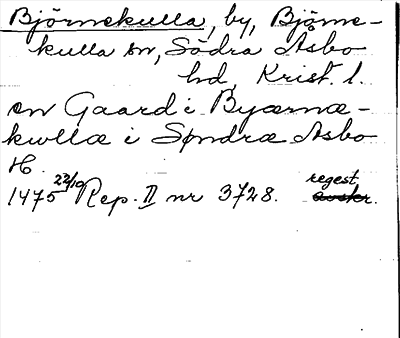 Björnekulla, by, Björne-
kulla sn, Södra Åsbo
hd, Krist. l.
en Gaard i Byærnæ-
kwllæ i Syndræ Asbo
H.
1475 22/10 Rep. II nr 3728. regest.
avskr.